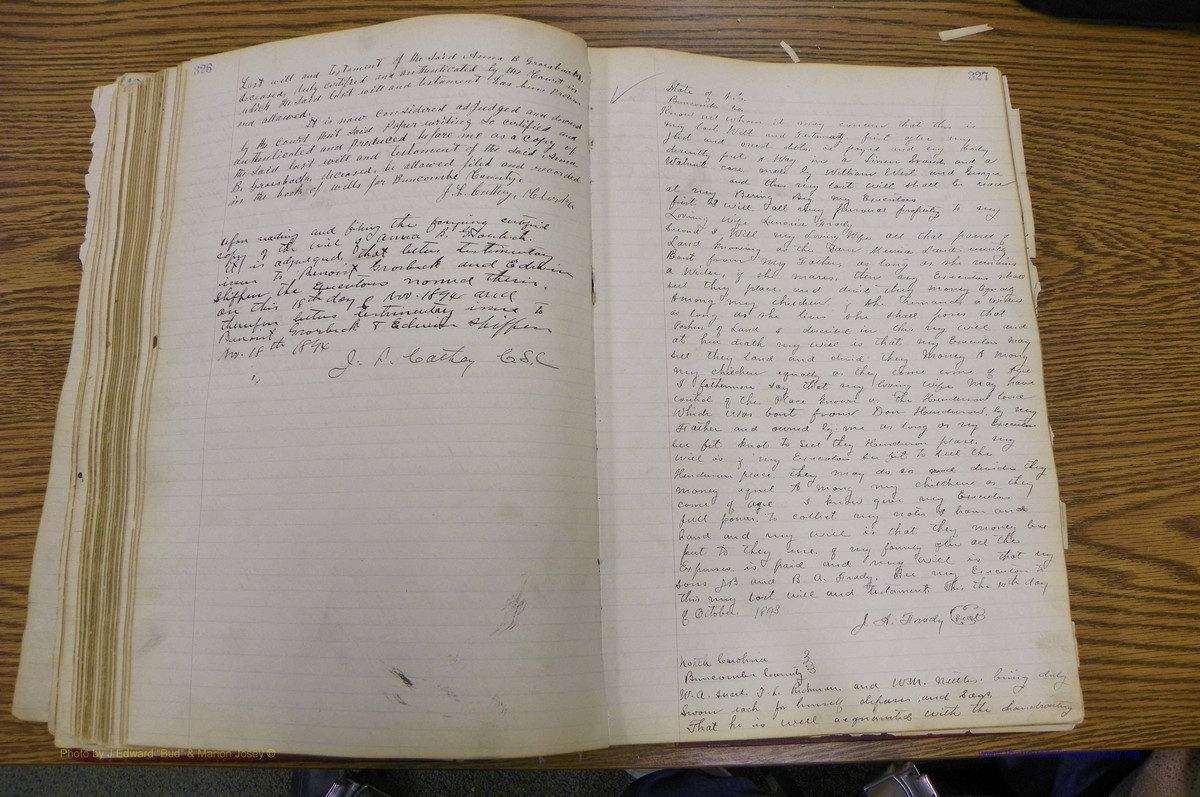 326
Last will and testament of the said Anna B Groesbeck
deceased, duly certified and authenticated by the Court in
which the said last will and testament has been proven
and allowed.
It is now considered adjudged and decreed
by the Court that said Paper writing so certified and
authenticated and produced before me as a copy of
the said last will and testament of the said Anna
B. Groesbeck, deceased, be allowed filed and recorded
in the book of wills for Buncombe County.
J. L. Cathey, Clerk
Upon reading and filing the forgoing certified
copy of the will of Anna B. Groesbeck
It is adjudged, that letters testimentary
issue to Grosbeck and Edwin
Shippen the Executors named therein,
on this 18th day of Nov. 1894 and
therefor letters testimentary issued to
Grosbeck & Edwin Shippen
Nov. 18th 1894
J. L. Cathey C.S.C
327
State of N.C.
Buncombe Co
Know all whom it may concern that this is
my last Will and Testiment. first after my
Just and used debts is payed and my body
decently put A Way in a linen Sraud and a
Walnut case made by William West and George
and this my last will shall be read
at my Buring By my Executors
first I will all my personal property to my
Loving Wife Frady
Second I Will my Loving Wife all that parcel of
Land knowing as the Land recently
Bout from My Father, as long as she remains
a Widow, if she mares, then my Executors shall
sell they place and divid they money Equaly
Among my children if she remands a widow
as long as she lives she shall poses that
Potion of Land discribed in this my will and
at his death my will is that my Executors may
sell they land and divid they Money A Mong
my children equally as they come come of age
I fathermon say that my loving wife may have
control of the Place known as the Henderson land
Which Was bout from Don Henderson, by my
Father and owned by me as long as my Executors
see fit knot to sell they Henderson place, my
will is if my Executors see fit to sell the
Henderson place, they may do so and divide they
money equel A mong my children as they
come of age I know give my Executors
full power, To collect my notes I have and
hand and my will is that they money bee
put to they use, of my family after all the
Expenses is paid and my will is that my
sons J.B. and B. A. Frady, Bee my Executors to
this my last will and testament. This the 10th day
of October 1893
J. A. Frady Seal
North Carolina
Buncombe County
W. A. T. L. and W.M. Nettles, being duly
Sworn each for himself deposes and says
That he is well acquainted with the handwriting
Photo by J Edward "Bud" & Marion Josey ©